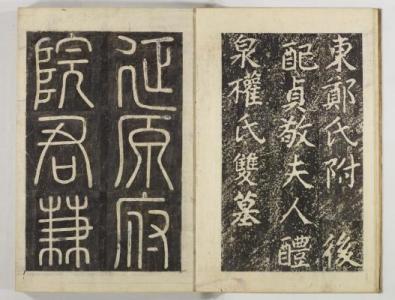 東鄭氏附後
配貞敬夫人醴
泉權氏雙墓
延原府
院君兼